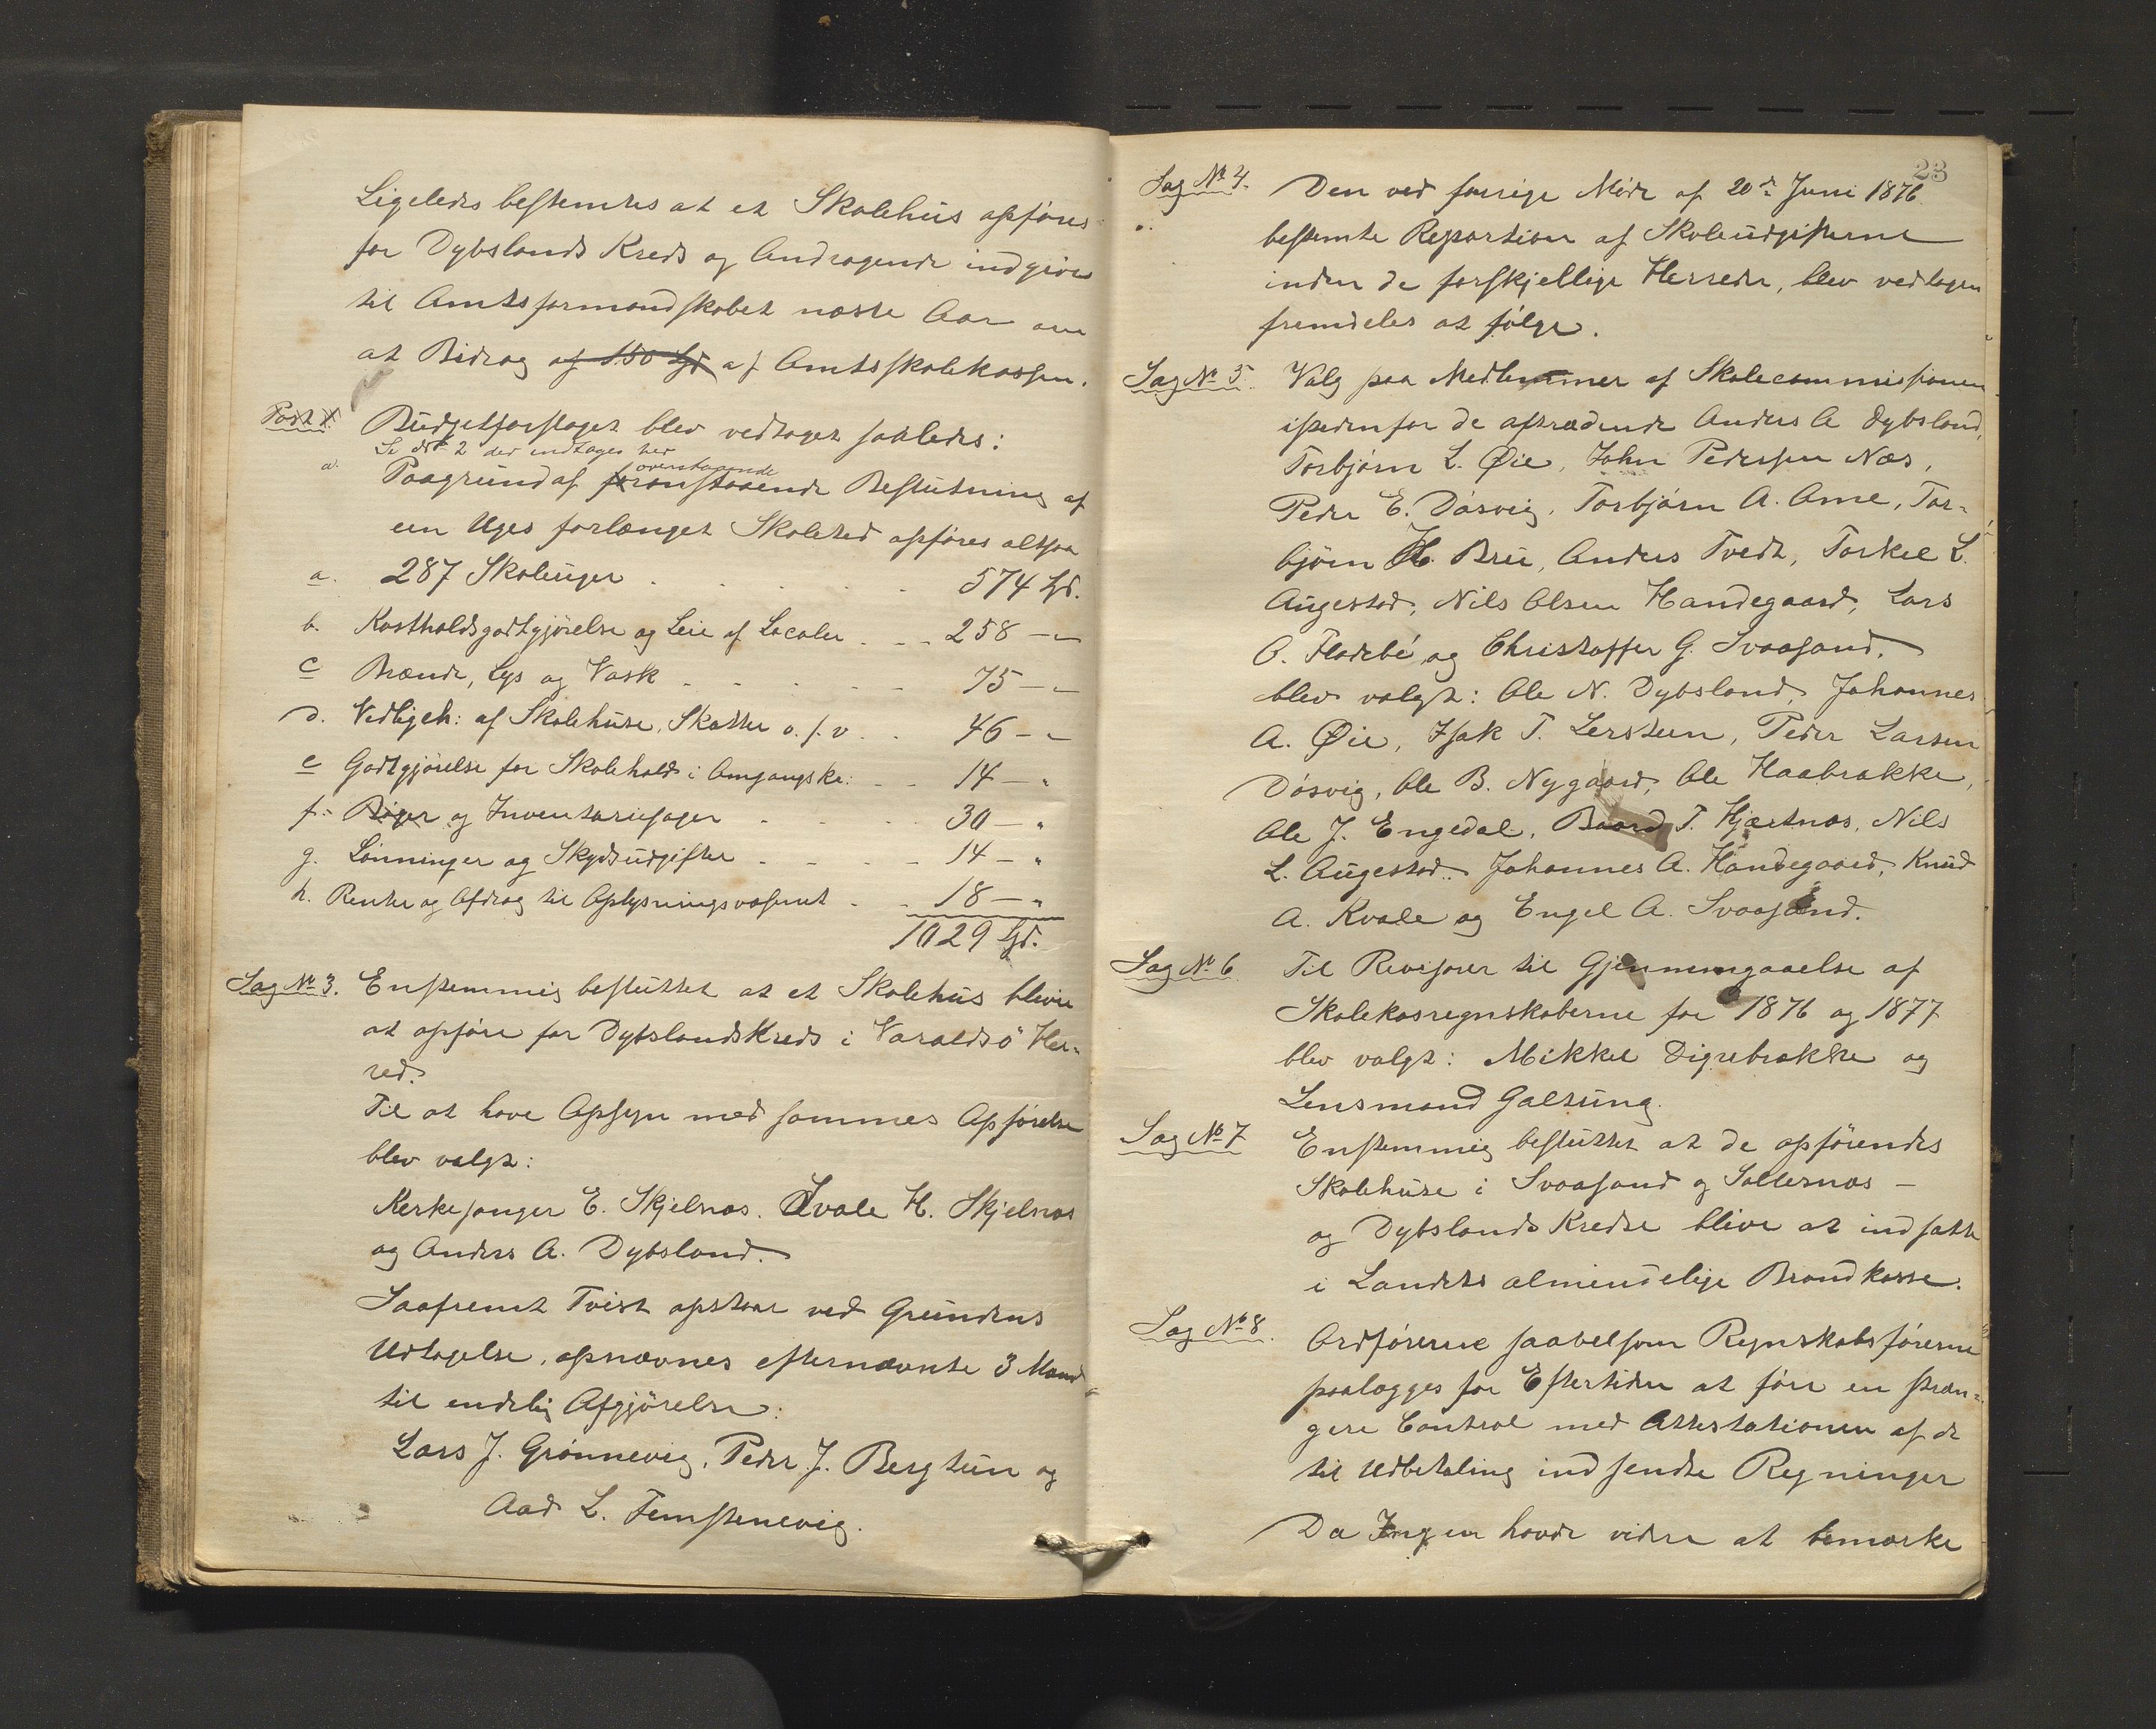 Ligeledes bestemtes at et Skolehus opføres
for Dybslands Kreds og Andragende indgives
til Amtsformandskabet næste Aar om
at Bidrag af 150 Spd af Amtsskolekassen.
Post 1. Budgetforslaget blev vedtaget saaledes:
Se No 2 der indtages her
a. Paagrund af foranstaaende overstaaende Beslutning af
een Uges forlænget Skoletid opføres altsaa
a. 287 Skoleuger . . . . . 574 Spd.
b. Kostholdsgodtgjørelse og Leie af Localer . . . 258 – „
c Brænde, Lys og Vask . . . . . 75 – „
d. Vedligeh: af Skolehuse, Skatter o. s. v. . . 46 – „
e Godtgjørelse for Skolehold i Omgangskr: . . 14 – „
f. Bøger og Inventariesager . . . . 30 – „
g. Lønninger og Skydsudgifter . . . . 14 – „
h. Renter og Afdrag til Oplysningsvæsenet . . 18 – „
1029 Spd.
Sag No 3. Enstemmig besluttet at et Skolehus bliver
at opføre for Dybslands Kreds i Varaldsø Her-
red.
Til at have Opsyn med sammes Opførelse
blev valgt:
Kirkesanger E. Skjelnæs. Ivale H. Skjelnæs
og Anders A. Dybsland.
Saafremt Tvist opstaar ved Grundens
Udtagelse, opnævnes efternævnte 3 Mænd
til endelig Afgjørelse:
Lars J. Grønnevig, Peder J. Bergtun og
Aad L. Femstenevig.
23
Sag No 4. Den ved forrige Møde af 20de Juni 1876
bestemte Repartion af Skoleudgifterne
inden de forskjellige Herreder, blev vedtagen
fremdeles at følge.
Sag No 5. Valg paa Medlemmer af Skolecommissionen
istedenfor de aftrædende Anders A Dybsland,
Torbjørn L. Øie, John Pedersen Næs,
Peder E. Døsvig, Torbjørn A. Ame, Tor-
bjørn H. Bru, Anders Tvedt, Torkel L.
Augestad, Nils Olsen Handegaard, Lars
O. Fladebø og Christoffer G. Svaasand,
blev valgt: Ole N. Dybsland, Johannes
A. Øie, Isak T. Lersteen, Peder Larsen
Døsvig, Ole B. Nygaard, Ole Haabrække,
Ole J. Engedal, Baard T. Hjærtnæs, Nils
L. Augestad, Johannes A. Handegaard, Knud
A. Kvale og Engel A. Svaasand.
Sag No 6 Til Revisorer til Gjennemgaaelse af
Skolekasregnskaberne for 1876 og 1877
blev valgt: Mikkel Digrebrække og
Lensmand Galtung.
Sag No 7 Enstemmig besluttet at de opførendes
Skolehuse i Svaasand og Sollesnæs –
og Dybslands Kredse blive at indsætte
i Landets almindelige Brandkasse.
Sag No 8. Ordførerne saavelsom Regnskabsførerne
paalægges for Eftertiden at føre en stræn-
gere Control med Attestationen af de
til Udbetaling indsendte Regninger
Da Ingen havde videre at bemærke